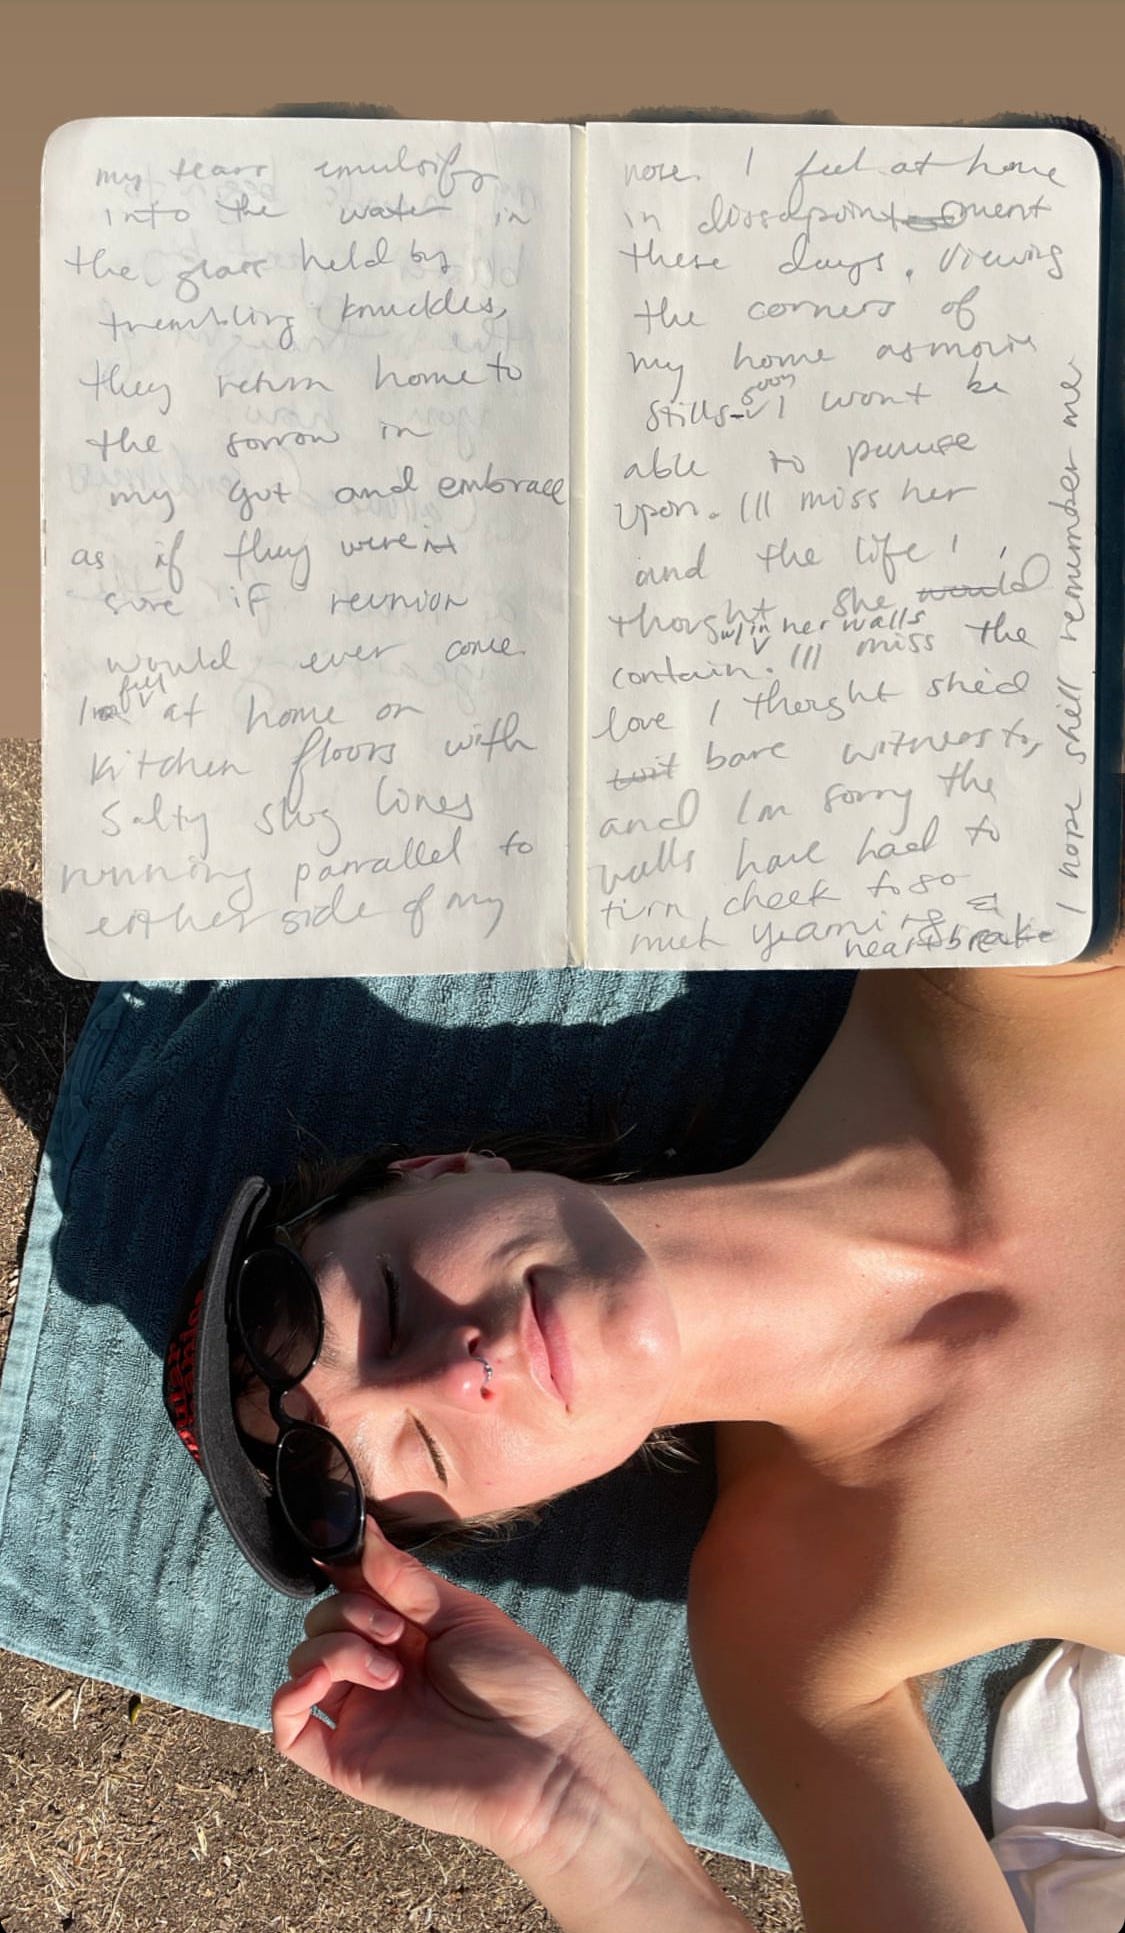 my tears emulsify
into the water in
the glass held by
trembling knuckles,
they return home to
the sorrow in
my gut and embrace
as if they weren't
sure if reunion
would ever come.
I feel at home on
kitchen floors with
salty slug lines
running parrallel to
either side of my
nose. I feel at home
in dissapointment
these days. Viewing
the corners of
my home as movie
stills- soon I wont be
able to peruse
upon. I'll miss her
and the life I
thought she would
contain w/in her walls. I'll miss the
love I thought she'd
wit bare witness to,
and I'm sorry the
walls have had to
turn cheek to so
much yearning &
heartbreak
I hope she'll remember me